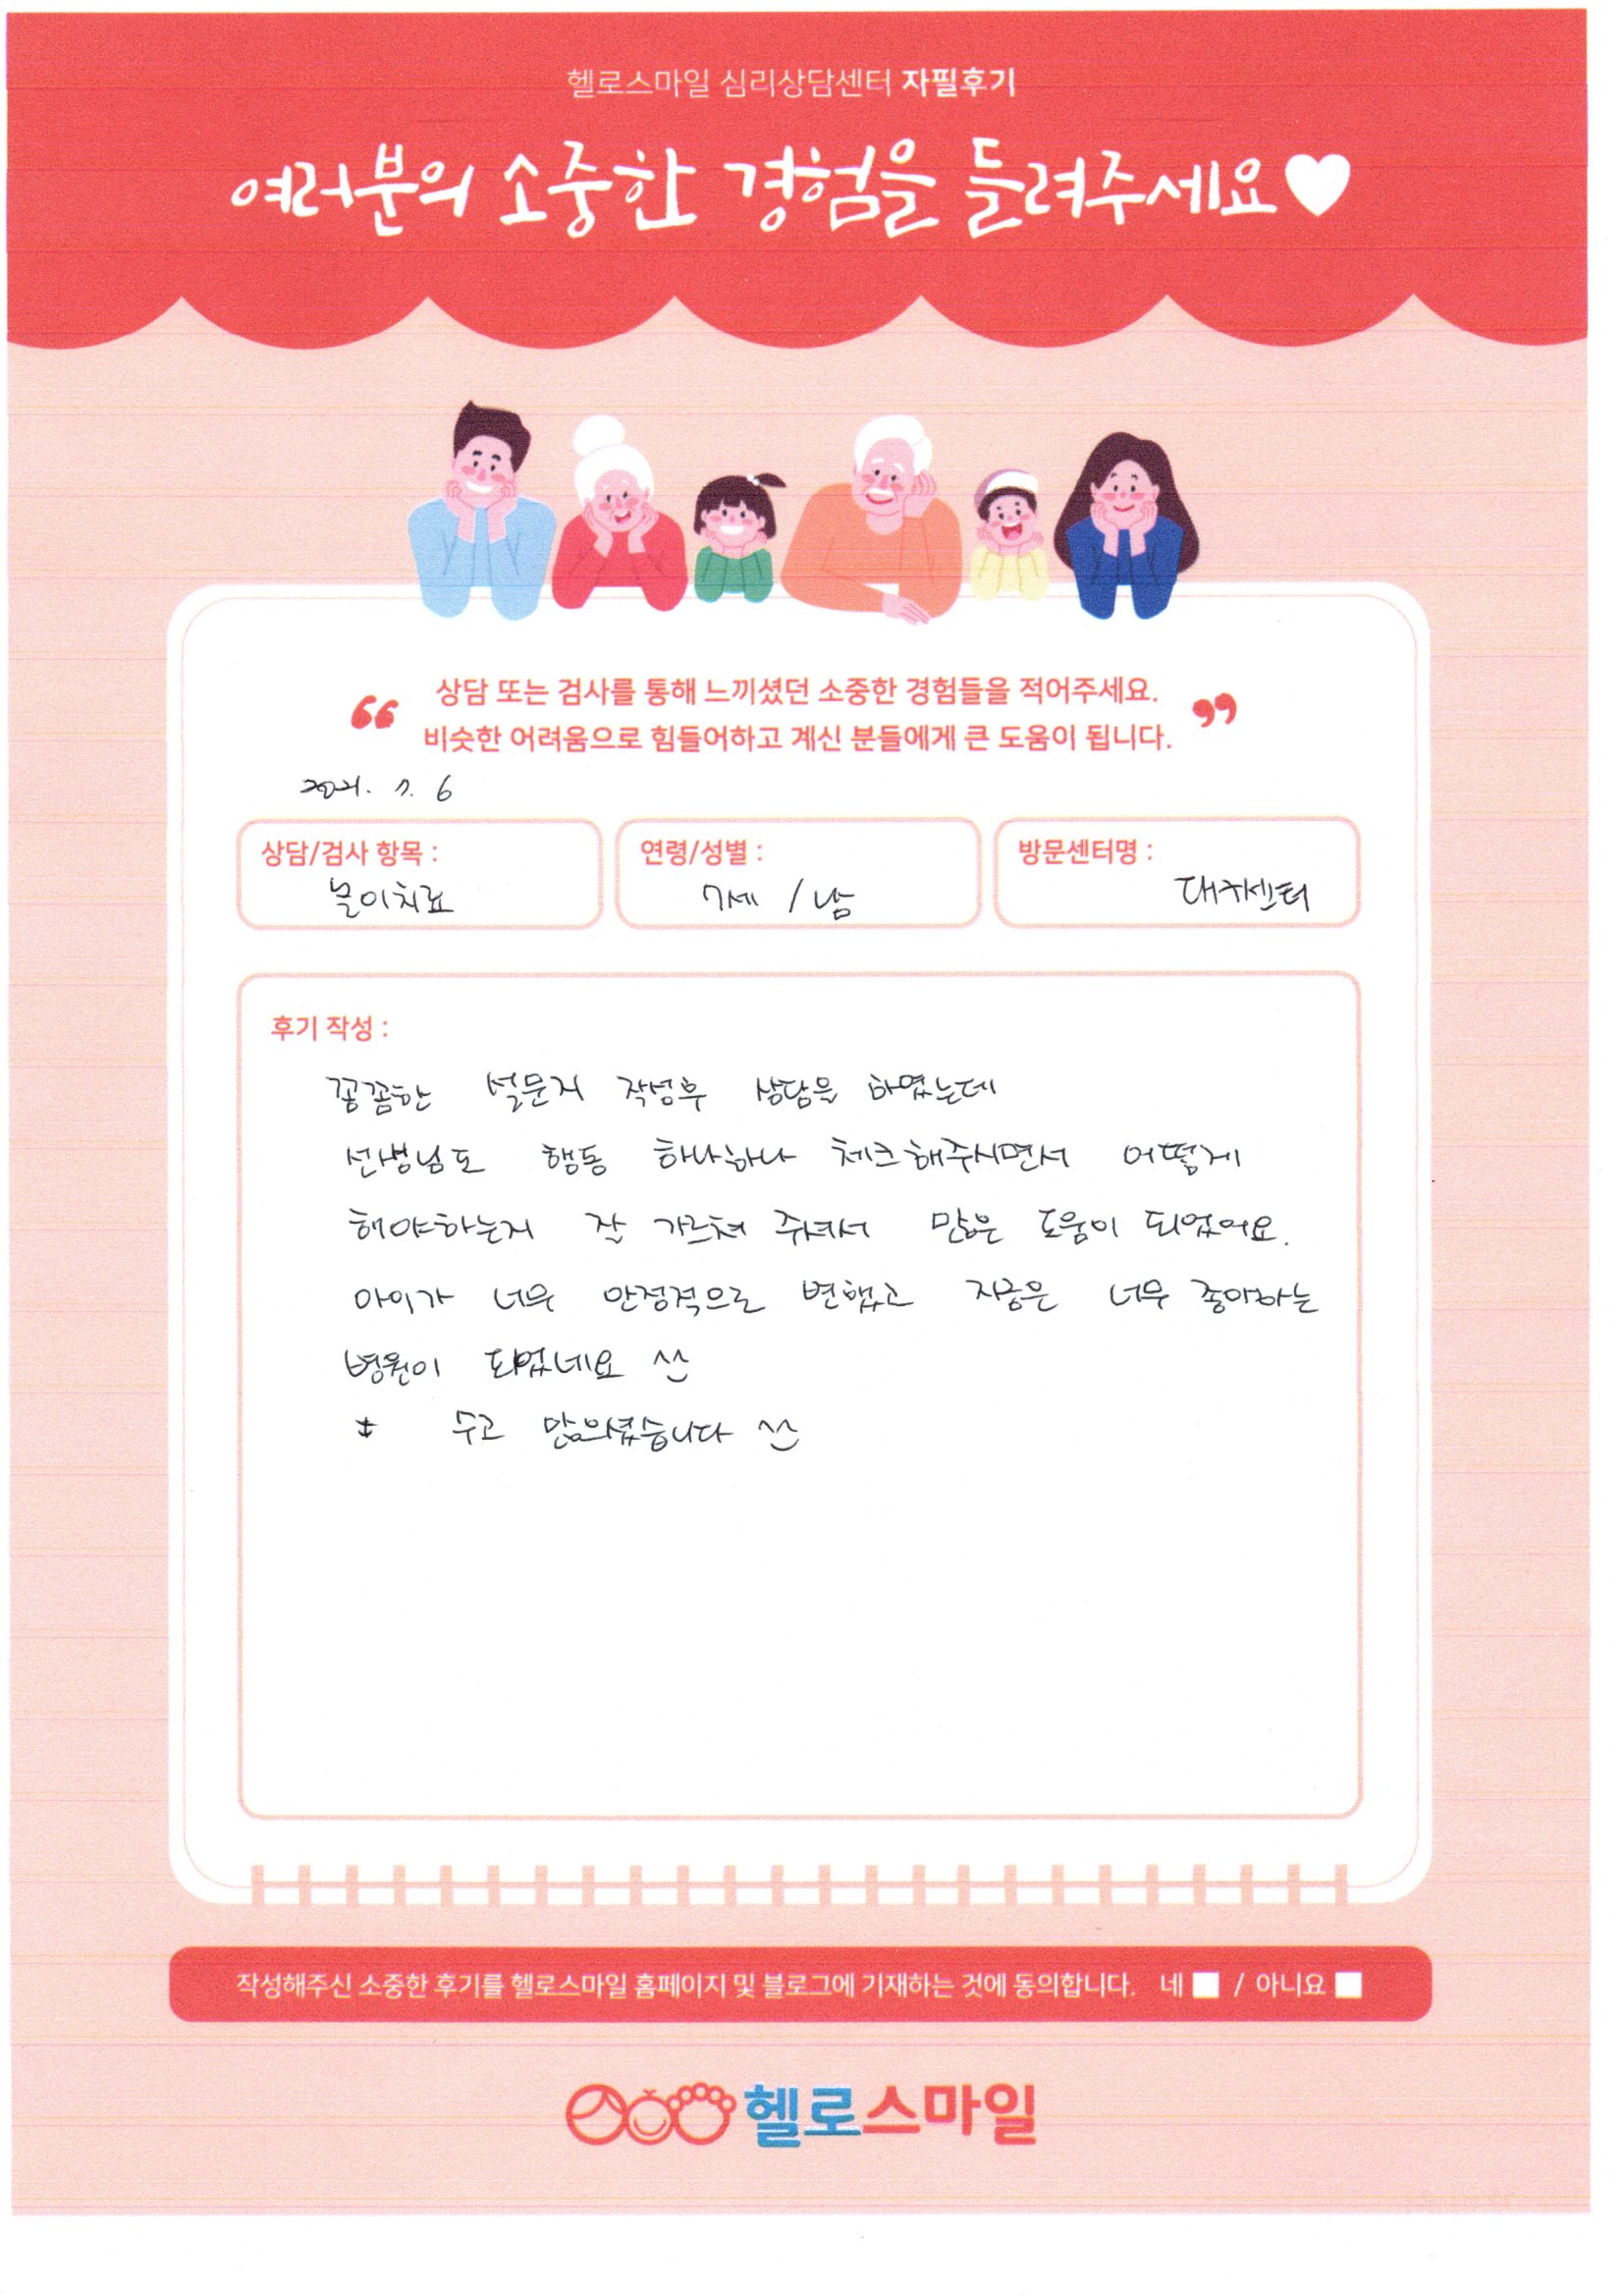 헬로스마일 심리상담센터 자필후기
여러분의 소중한 경험을 들려주세요
상담 또는 검사를 통해 느끼셨던 소중한 경험들을 적어주세요.
비슷한 어려움으로 힘들어하고 계신 분들에게 큰 도움이 됩니다.
2021. 7. 6
상담/검사 항목 : 놀이치료
연령/성별 : 7세 / 남
방문센터명 : 대구센터
후기 작성 :
꼼꼼한 설문지 작성후 상담을 하였는데
선생님도 행동 하나하나 체크해주시면서 어떻게
해야하는지 잘 가르쳐 주셔서 많은 도움이 되었어요.
아이가 너무 안정적으로 변했고 지금은 너무 좋아하는
병원이 되었네요 ^^
수고 많으셨습니다 ^^
작성해주신 소중한 후기를 헬로스마일 홈페이지 및 블로그에 기재하는 것에 동의합니다. 네 / 아니요
헬로스마일